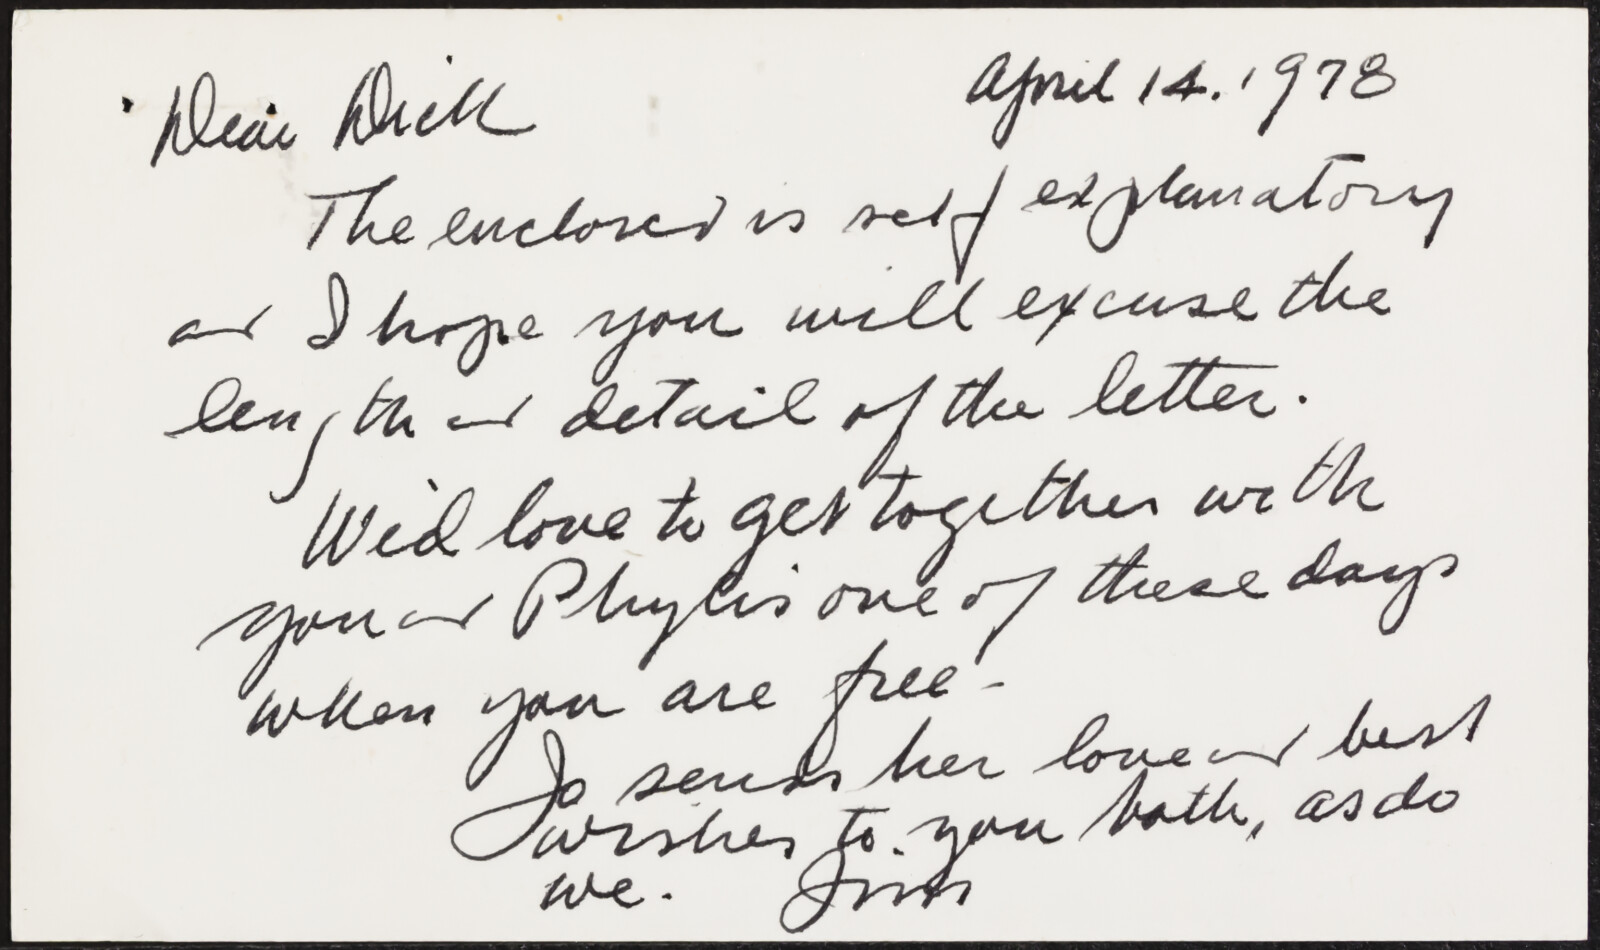 April 14. 1978
Dear Dick
The enclosed is self explanatory
and I hope you will excuse the
length and detail of the letter.
We'd love to get together with
you and Phylis one of these days
when you are free -
Jo sends her love and best
wishes to you both, as do
we.